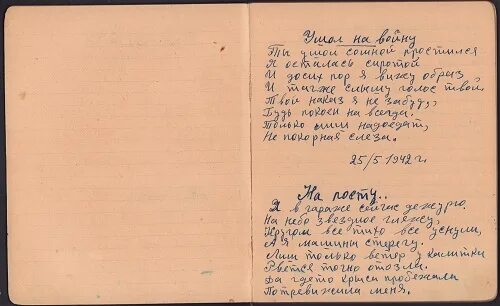 Ушол на войну
Ты ушол сомной простился
Я осталась сиротой
И досих пор я вижу образ
И также слышу голос твой.
Твой наказ я не забуду,
Будь покоен на всегда.
Только мне надоедат,
Не покорная слеза.
25/5 1942 г.
На посту..
Я в гараже сейчас дежурю.
На небо звездное гляжу,
Кругом все тихо все уснули,
А я машины стерегу.
Лиш только ветер у калитки
Рвется точно
Да гдето крыса пробежала
Потревижила меня.